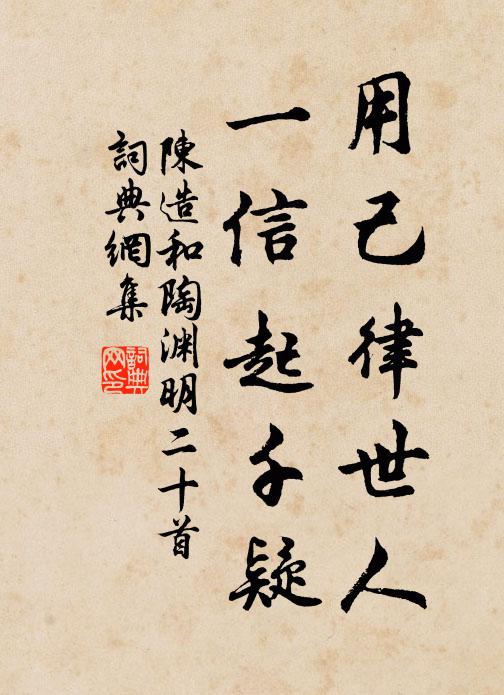 用己律世人
一信起千疑
陳造和陶渊明二十首
詞典網集
詞典網印